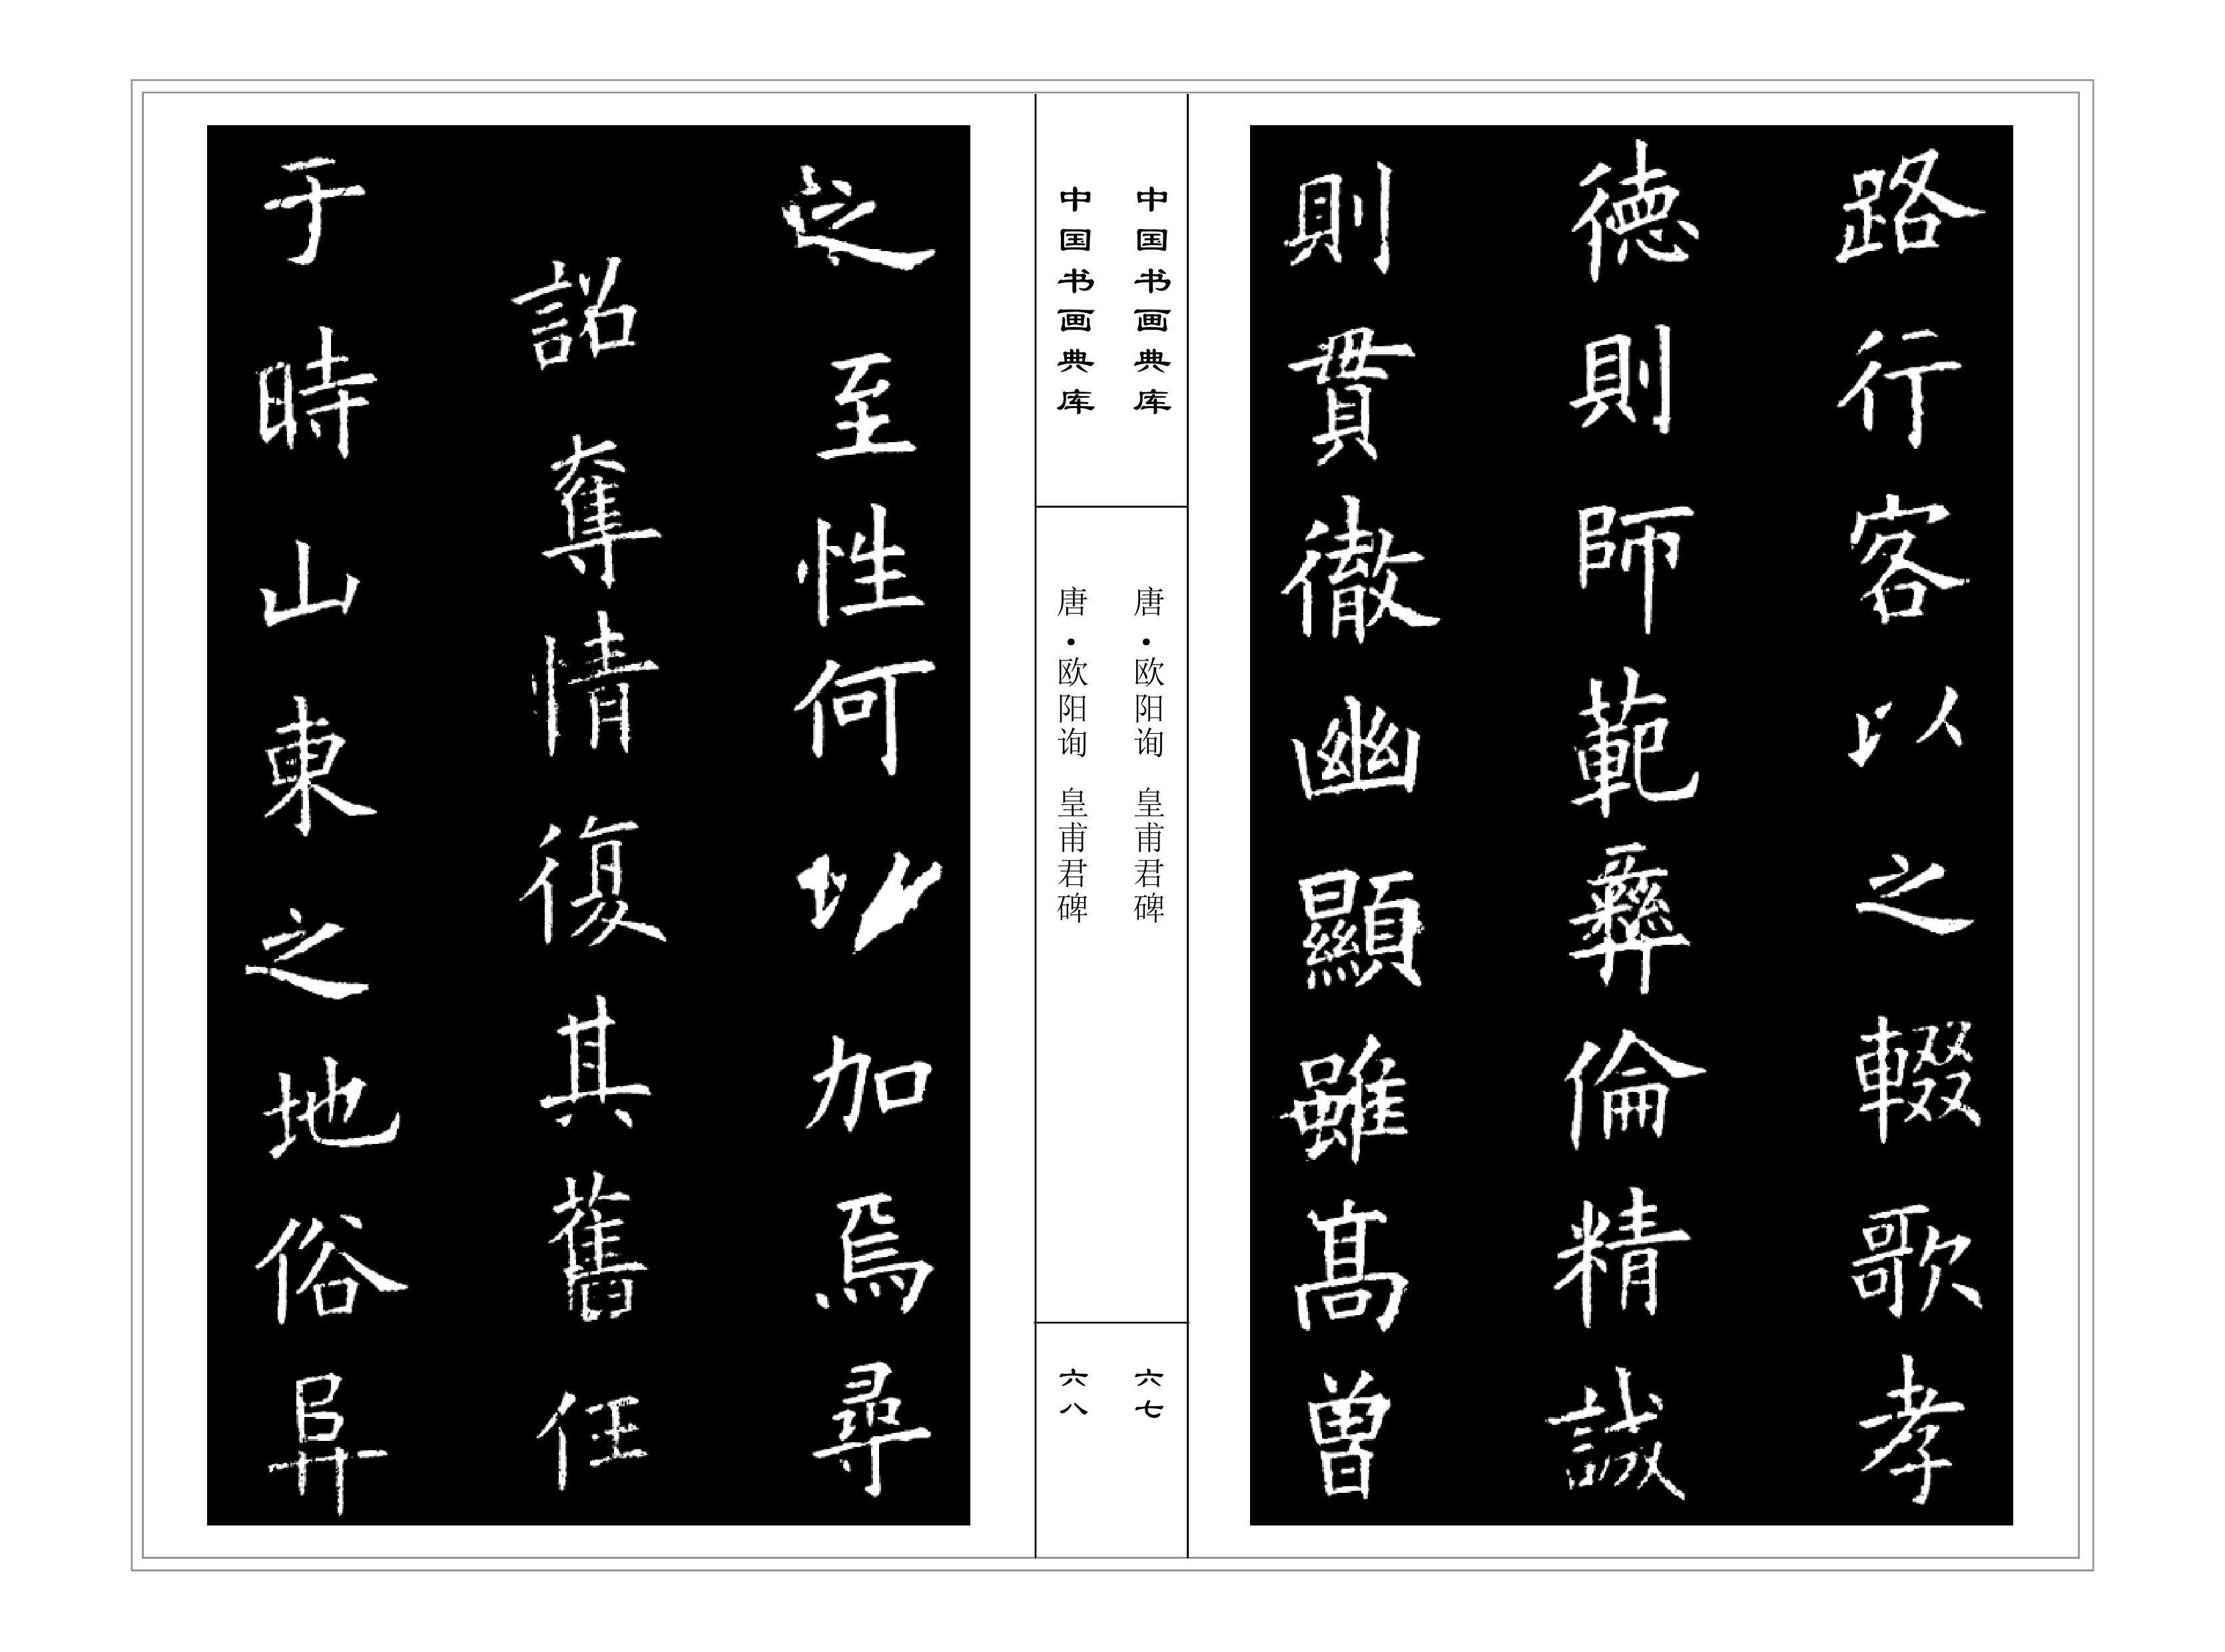 路行客以之輟歌孝
德則師範彝倫精誠
則貫徹幽顯雖高曾
中国书画典库
唐·欧阳询 皇甫君碑
六七
中国书画典库
唐·欧阳询 皇甫君碑
六八
之至性何以加焉尋
詔奪情復其舊任
于時山東之地俗阜